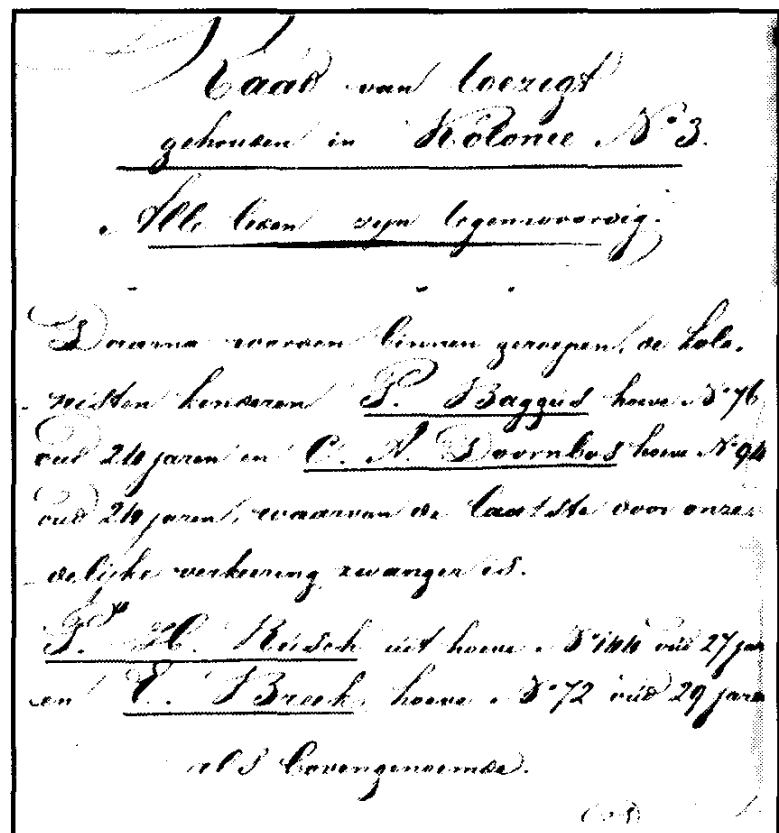 Raad van toezigt
gehouden in Kolonie No 3.
Alle leden zijn tegenwoordig.
Daarna worden binnen geroepen, de kolo-
nisten kinderen P. Baggus hoeve No 76
oud 24 jaren en C. A. Doornbos hoeve No 94
oud 24 jaren, waarvan de laatste door onze-
delijke verkeering zwanger is.
H. Reusch uit hoeve No 144 oud 27 jar
en E. Breek, hoeve No 72 oud 29 jaren
als bovengenoemde.